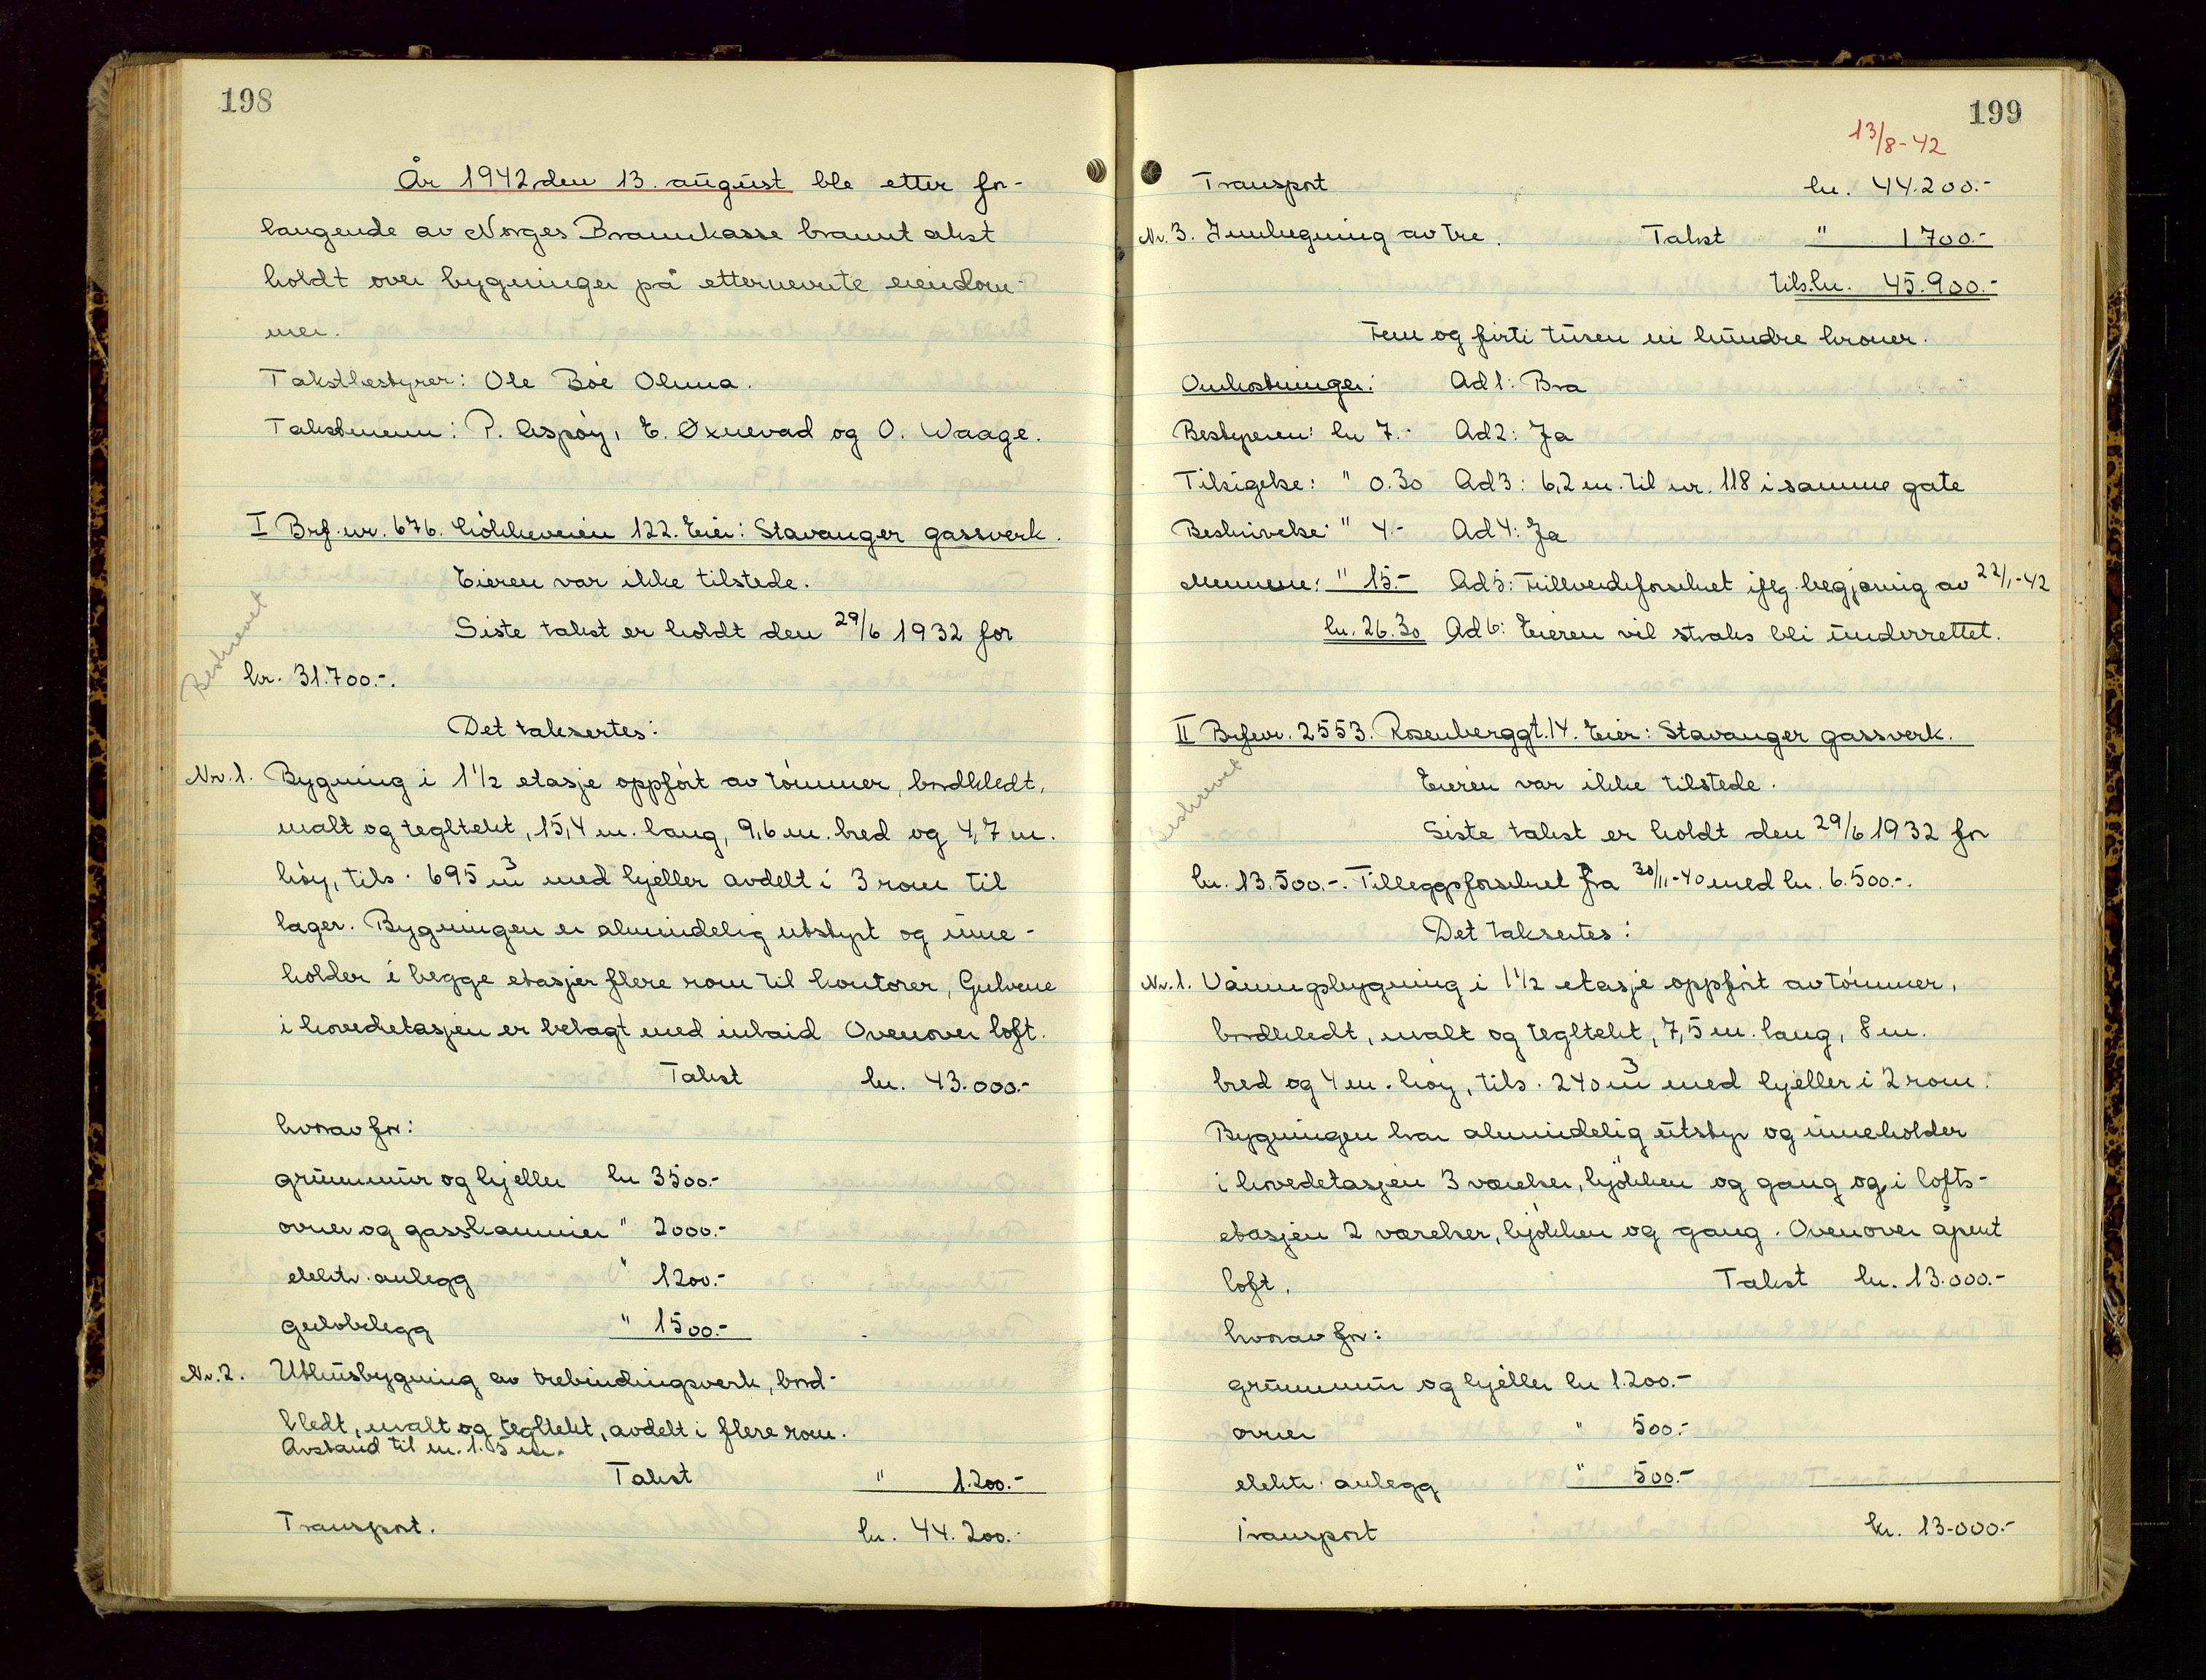 198
År 1942 den 13. august ble etter for-
langende av Norges Brannkasse branntakst
holdt over bygninger på etternevnte eiendom-
mer.
Takstbestyrer: Ole Bøe Olena.
Takstmenn: P. Aspøy, E. Øxnevad og O. Waage.
I Brf. nr. 676. Løkkeveien 122. Eier: Stavanger gassverk.
Eieren var ikke tilstede.
Beskrevet
Siste takst er holdt den 29/6 1932 for
kr. 31.700.-.
Det taksertes:
Nr. 1. Bygning i 1 1/2 etasje oppført av tømmer, bordkledt,
malt og tegltekt, 15,4 m. lang, 9,6 m. bred og 4,7 m.
høy, tils. 695 m3 med kjeller avdelt i 3 rom til
lager. Bygningen er almindelig utstyrt og inne-
holder i begge etasjer flere rom til kontorer, Gulvene
i hovedetasjen er belagt med inlaid Ovenover loft.
Takst kr. 43.000.-
hvorav for:
grunnmur og kjeller kr 3500.-
ovner og gasskaminer " 2000.-
elektr. anlegg " 1200.-
gulvbelegg " 1500.-
Nr. 2. Uthusbygning av trebindingsverk, bord-
kledt, malt og tegltekt, avdelt i flere rom.
Avstand til nr. 1. 5 m.
Takst " 1.200.-
Transport. kr. 44.200.-
199
13/8-42
Transport kr. 44.200.-
Nr. 3. Innhegning av tre. Takst " 1700.-
tils. kr. 45.900.-
Fem og firti tusen ni hundre kroner.
Omkostninger: Ad 1: Bra
Bestyreren: kr 7.- Ad 2: Ja
Tilsigelse: " 0.30 Ad 3: 6,2 m. til nr. 118 i samme gate
Beskrivelse: " 4.- Ad 4: Ja
Mennene: " 15.- Ad 5: Fullverdiforsikret iflg. begjæring av 22/1-42
kr. 26.30 Ad 6: Eieren vil straks bli underrettet.
II Brf. nr. 2553. Rosenberggt. 14. Eier: Stavanger gassverk.
Eieren var ikke tilstede.
Beskrevet
Siste takst er holdt den 29/6 1932 for
kr. 13.500.-. Tilleggsforsikret fra 30/11-40 med kr. 6.500.-.
Det taksertes:
Nr. 1. Våningsbygning i 1 1/2 etasje oppført av tømmer,
bordkledt, malt og tegltekt, 7,5 m. lang, 8 m.
bred og 4 m. høy, tils. 240 m3 med kjeller i 2 rom.
Bygningen har almindelig utstyr og inneholder
i hovedetasjen 3 værelser, kjøkken og gang og i lofts-
etasjen 2 værelser, kjøkken og gang. Ovenover åpent
loft. Takst kr. 13.000.-
hvorav for:
grunnmur og kjeller kr 1.200.-
ovner " 500.-
elektr. anlegg " 500.-
Transport kr. 13.000.-